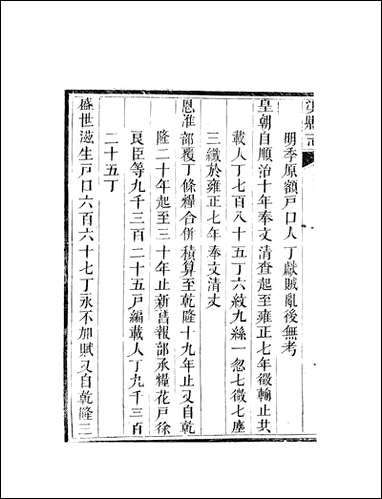 漢縣志
明季原額戸口人丁獻賊亂後無考
皇朝自順治十年奉文清查起至雍正七年徵輸止共
載人丁七百八十五丁六紋九絲一忽七微七塵
三纖於雍正七年奉文清丈
恩准部覆丁條糧合併積算至乾隆十九年止又自乾
隆二十年起至三十年止新舊報部承糧花戸徐
良臣等九千三百二十五戸編載人丁九千三百
二十五丁
盛世滋生戸口六百六十七丁永不加賦又自乾隆三